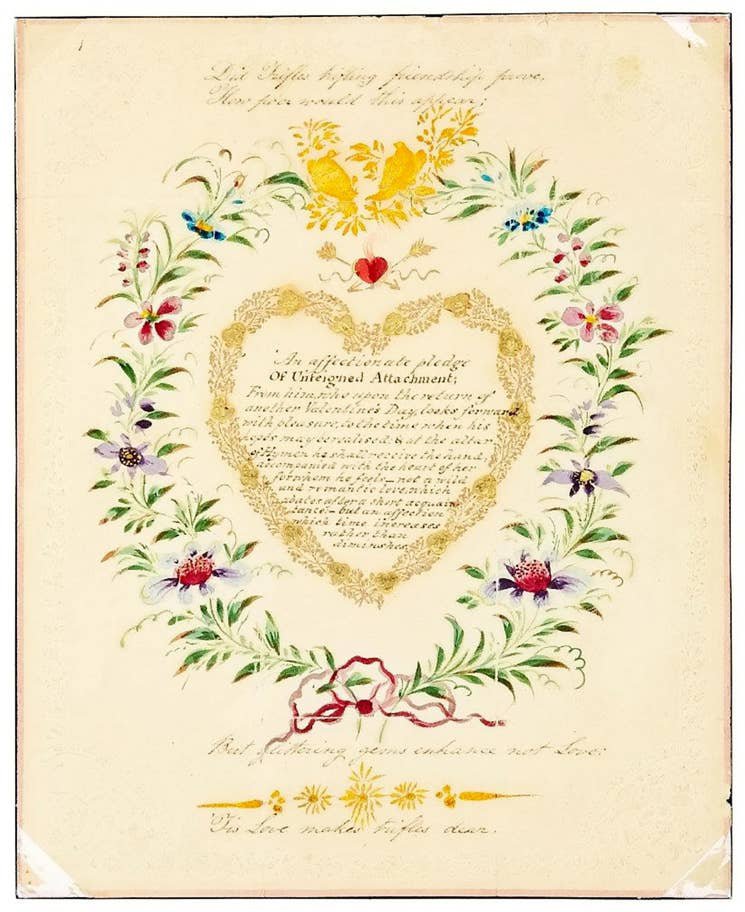 Did Trifles trifling friendship prove,
How poor would this appear;
An affectionate pledge
Of Unfeigned Attachment;
From him, who upon the return of
another Valentine's Day, looks forward
with pleasure, to the time when his
may be realised & at the altar
of Hymen he shall receive the hand,
accompanied with the heart of her
for whom he feels – not a wild
and romantic love, which
abates after a short acquain-
tance – but an affection
which time increases
rather than
diminishes.
But glittering gems enhance not Love:
'Tis Love makes trifles dear.